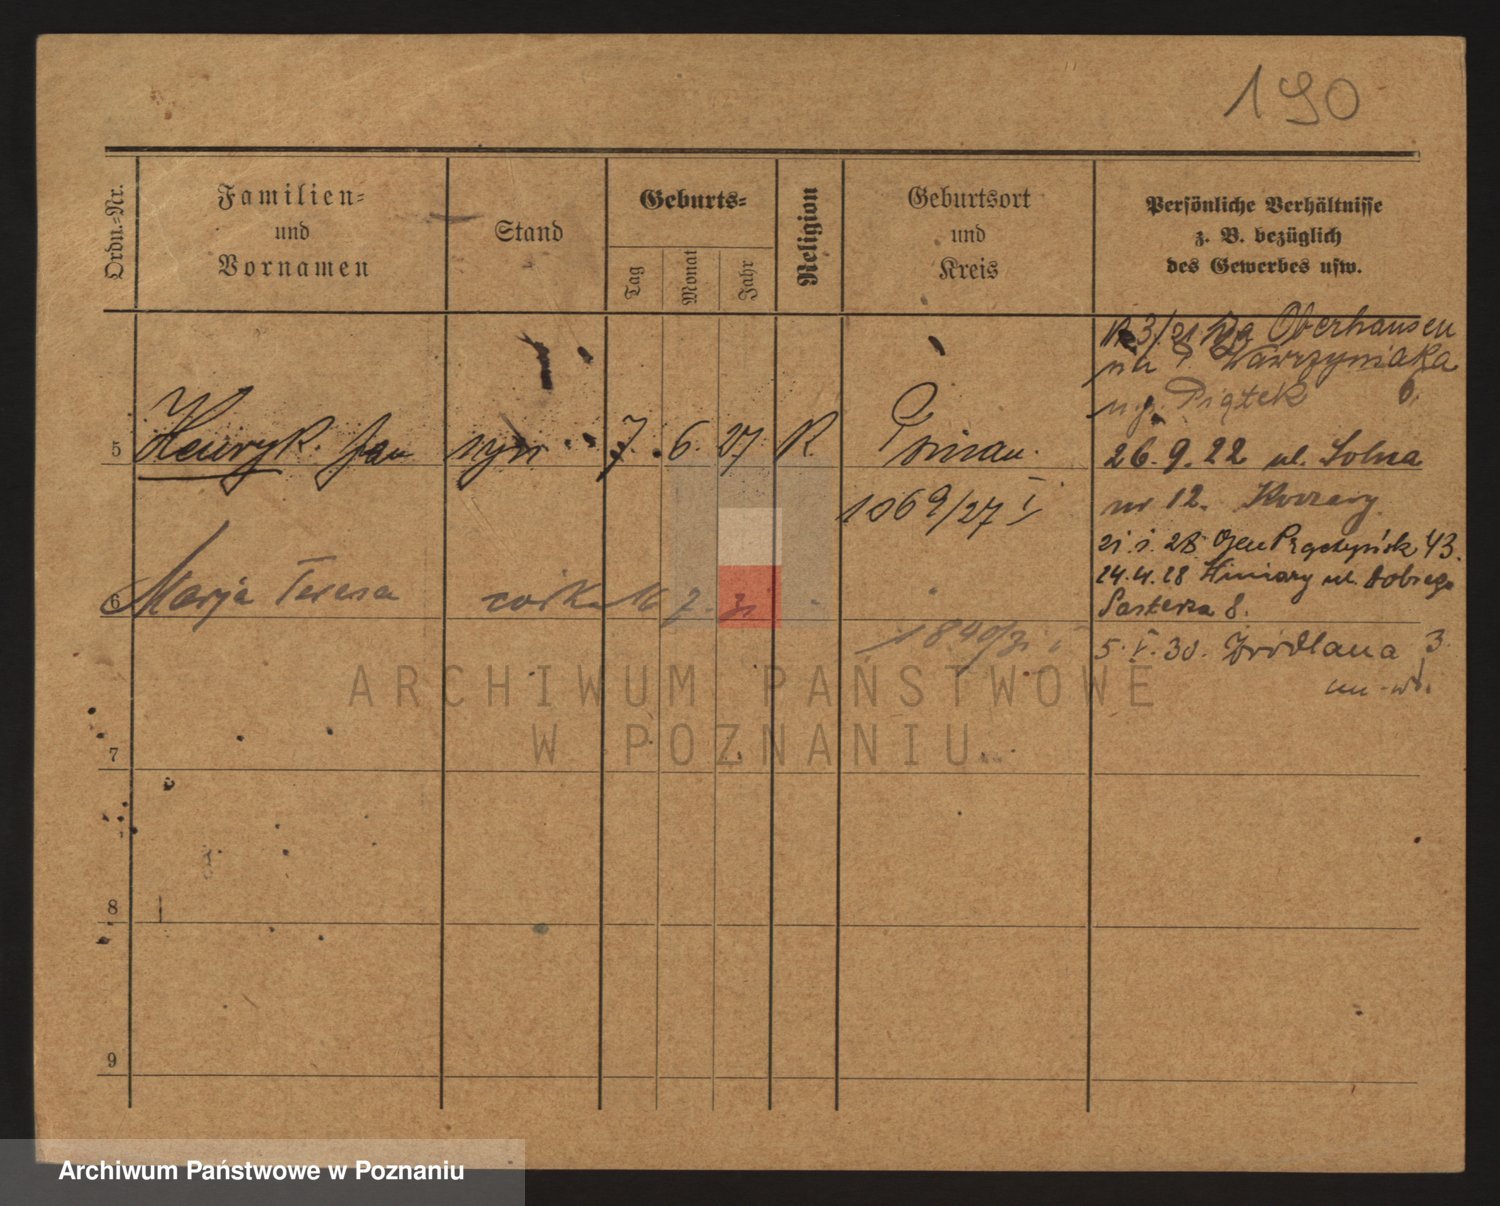 190
Ordn.-Nr.
Familien-
und
Vornamen
Stand
Geburts-
Tag
Monat
Jahr
Religion
Geburtsort
und
Kreis
Persönliche Verhältnisse
z. B. bezüglich
des Gewerbes usw.
3/21 Oberhausen
Wawrzyniaka
u. p. Piątek
5 Henryk Jan syn 7. 6. 27. K.
26. 9. 22 ul. Solna
1069/27 I
nr 12.
21. 1. 28 43.
6 Marja Teresa córka 16 7. 31
24. 4. 28 ul. Dobrego
Pasterza 8.
1840/31 I
5. V. 30. Źródlana 3
7
8
9
ARCHIWUM PAŃSTWOWE
W POZNANIU
Archiwum Państwowe w Poznaniu